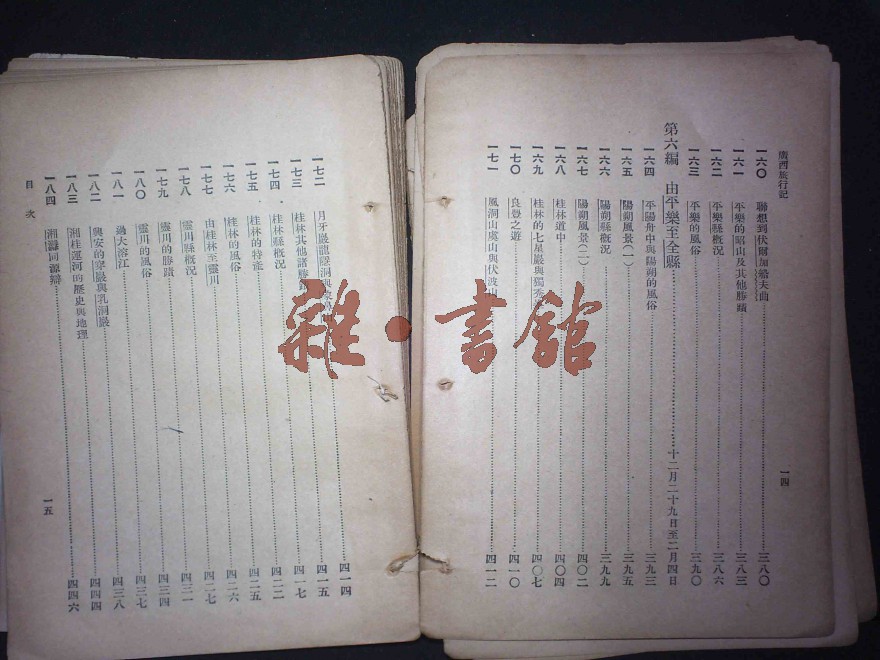 廣西旅行記
一四
一六〇 聯想到伏爾加船夫曲 三八〇
一六一 平樂的昭山及其他勝蹟 三八三
一六二 平樂縣概況 三八六
一六三 平樂的風俗 三九〇
第六編 由平樂至全縣 十二月二十九日至二月四日
一六四 平陽舟中與陽朔的風俗 三九三
一六五 陽朔風景(一) 三九五
一六六 陽朔縣概況 三九九
一六七 陽朔風景(二) 四〇二
一六八 桂林道中 四〇四
一六九 桂林的七星巖與獨秀 四〇七
一七〇 良豐之遊 四一〇
一七一 風洞山虞山與伏波山 四一二
一七二 月牙巖龍隱洞與 四一四
一七三 桂林其他諸勝 四一五
一七四 桂林縣概況 四一七
一七五 桂林的特產 四二二
一七六 桂林的風俗 四二五
一七七 由桂林至靈川 四二六
一七八 靈川縣概況 四二七
一七九 靈川的勝蹟 四三一
一八〇 靈川的風俗 四三四
一八一 過大溶江 四三七
一八二 興安的 巖與乳洞巖 四三八
一八三 湘桂運河的歷史與地理 四四四
一八四 湘灕同源辯 四四六
目次
一五
雜·書館